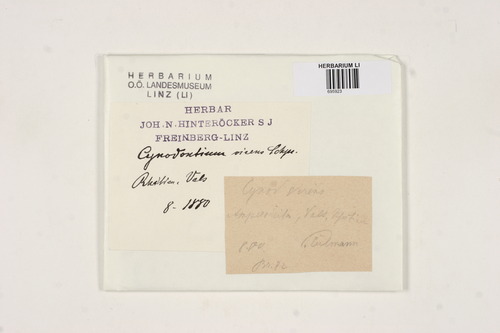 HERBARIUM
O.Ö. LANDESMUSEUM
LINZ (LI)
HERBARIUM LI
HERBAR
JOH. N. HINTERÖCKER S J
FREINBERG-LINZ
Cynodontium virens Schpr.
Rhätien, Vals
8 - 1880
Cynod. virens
Vals